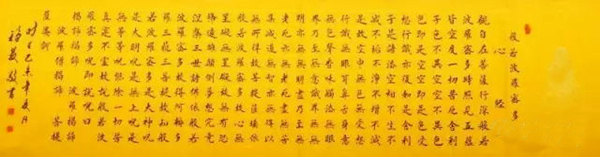 般若波羅蜜多
心經
觀自在菩薩行深般若
波羅蜜多時照見五蘊
皆空度一切苦厄舍利
子色不異空空不異色
色即是空空即是色受
想行識亦復如是舍利
子是諸法空相不生不
滅不垢不淨不增不減
是故空中無色無受想
行識無眼耳鼻舌身意
無色聲香味觸法無眼
界乃至無意識界無無
明亦無無明盡乃至無
老死亦無老死盡無苦
集滅道無智亦無得以
無所得故菩提薩埵依
般若波羅蜜多故心無
罣礙無罣礙故無有恐
怖遠離顛倒夢想究竟
涅槃三世諸佛依般若
波羅蜜多故得阿耨多
羅三藐三菩提故知般
若波羅蜜多是大神咒
是大明咒是無上咒是
無等等咒能除一切苦
真實不虛故說般若波
羅蜜多咒即說咒曰
揭諦揭諦 波羅揭諦
波羅僧揭諦 菩提
薩婆訶
未年夏月
敬書